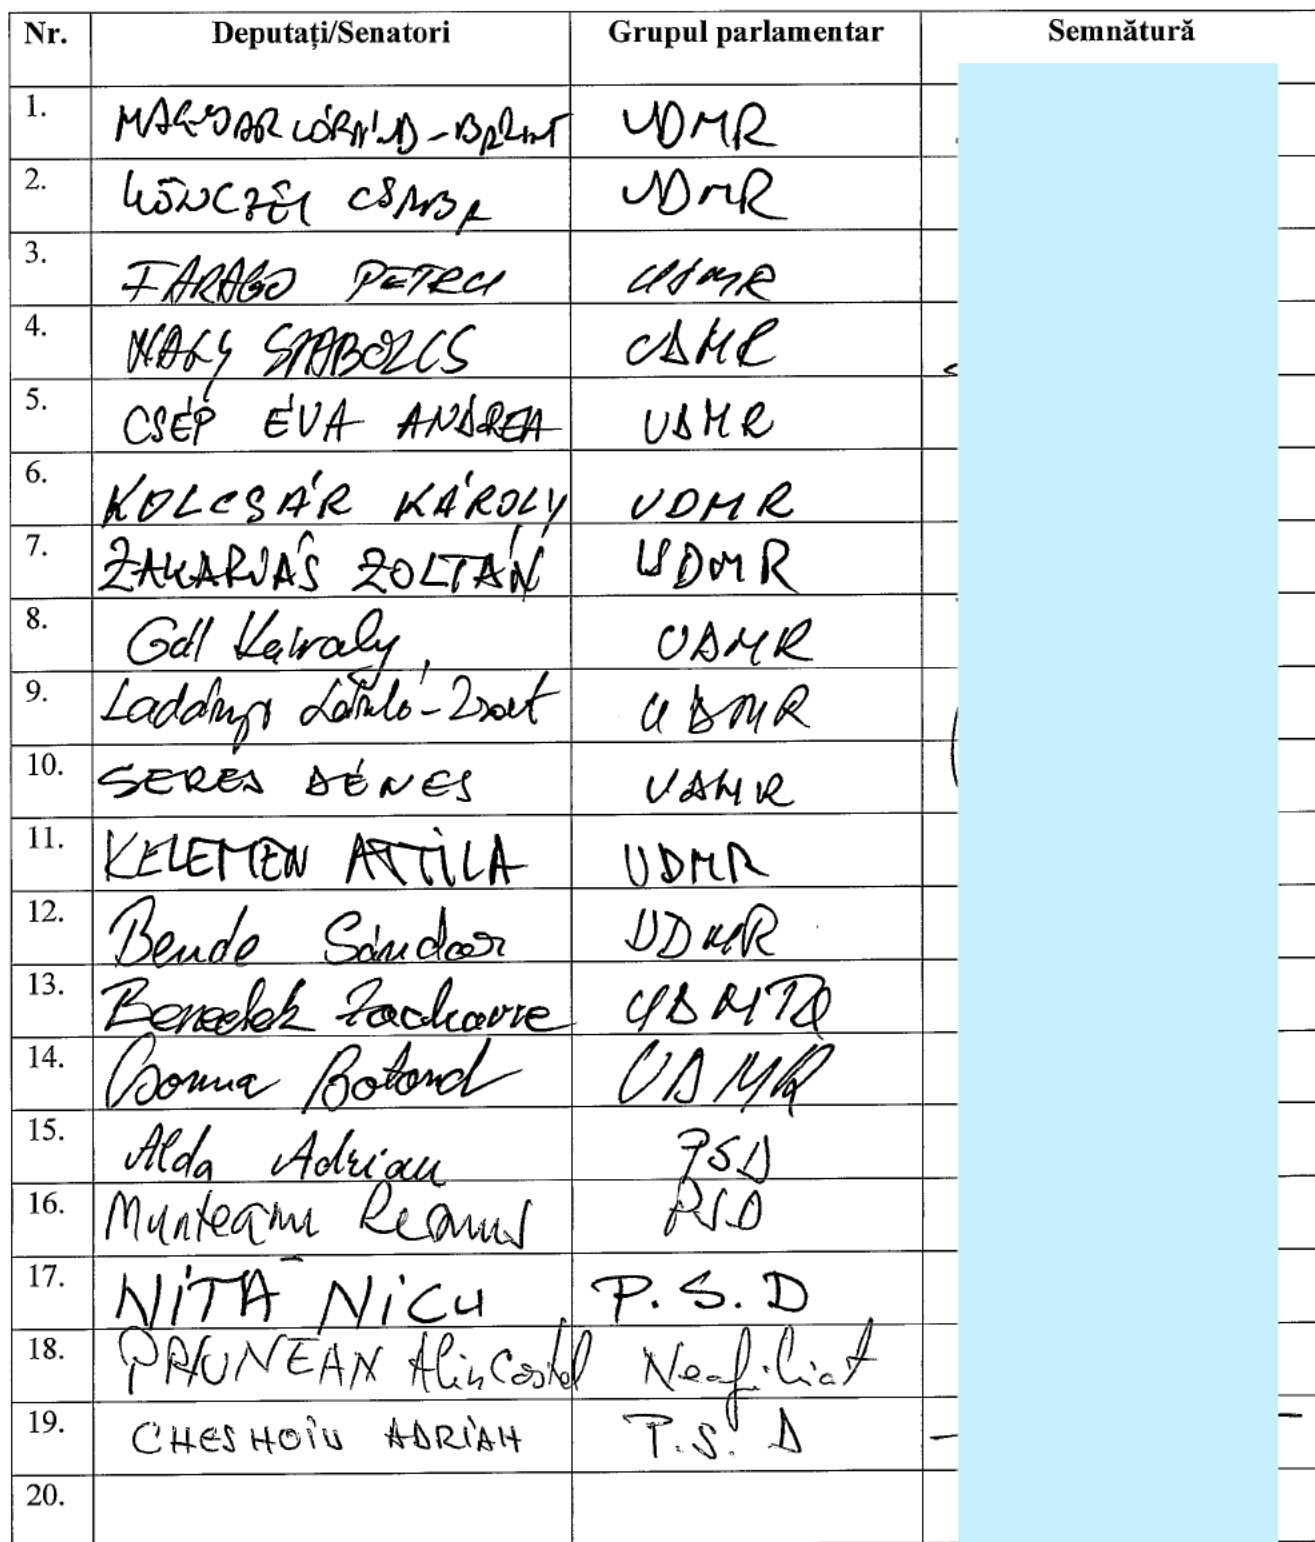 Nr. Deputați/Senatori Grupul parlamentar Semnătură
1. MAGYAR LÓRÁND-BÁLINT UDMR
2. KÖNCZEI CSABA UDMR
3. FARAGO PETRU UDMR
4. NAGY SZABOLCS UDMR
5. CSÉP ÉVA ANDREA UDMR
6. KOLCSÁR KÁROLY UDMR
7. ZAKARIÁS ZOLTÁN UDMR
8. Gál Károly UDMR
9. Ladányi László-Zsolt UDMR
10. SERES DÉNES UDMR
11. KELEMEN ATTILA UDMR
12. Bende Sándor UDMR
13. Benedek Zacharie UDMR
14. Csoma Botond UDMR
15. Alda Adrian PSD
16. Munteanu Remus PSD
17. NIȚĂ NICU P.S.D
18. PĂUNEAN Alin Costel Neafiliat
19. CHESNOIU ADRIAN P.S.D
20.